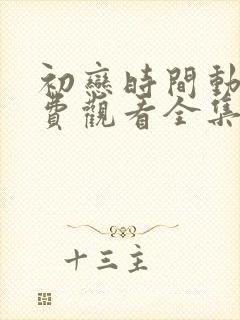 初戀時間動
費觀看全集
十三主